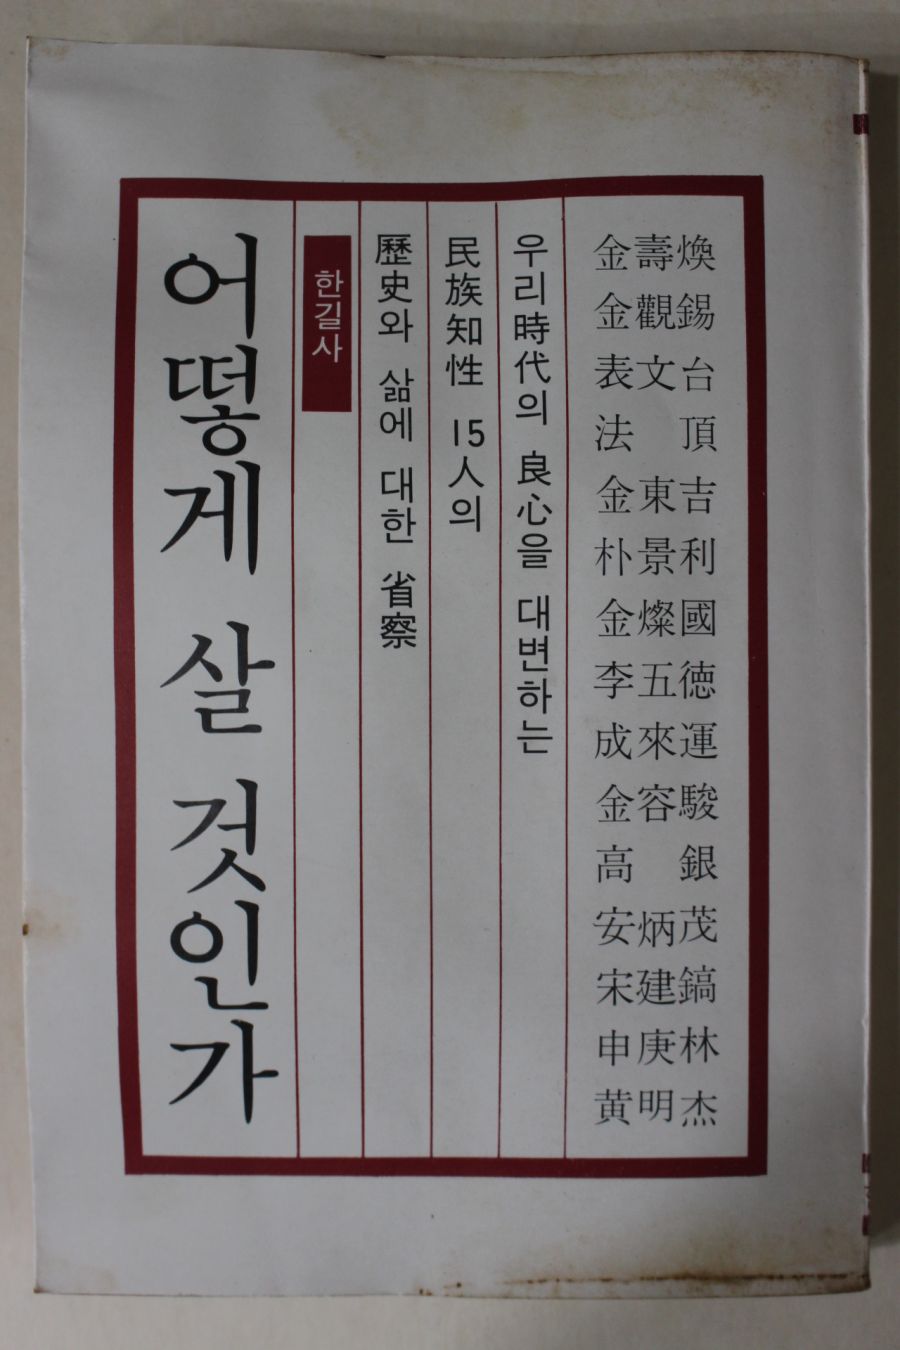 金壽煥
金觀錫
表文台
法頂
金東吉
朴景利
金燦國
李五德
成來運
金容駿
高銀
安炳茂
宋建鎬
申庚林
黃明杰
우리時代의 良心을 대변하는
民族知性 15人의
歷史와 삶에 대한 省察
한길사
어떻게 살 것인가